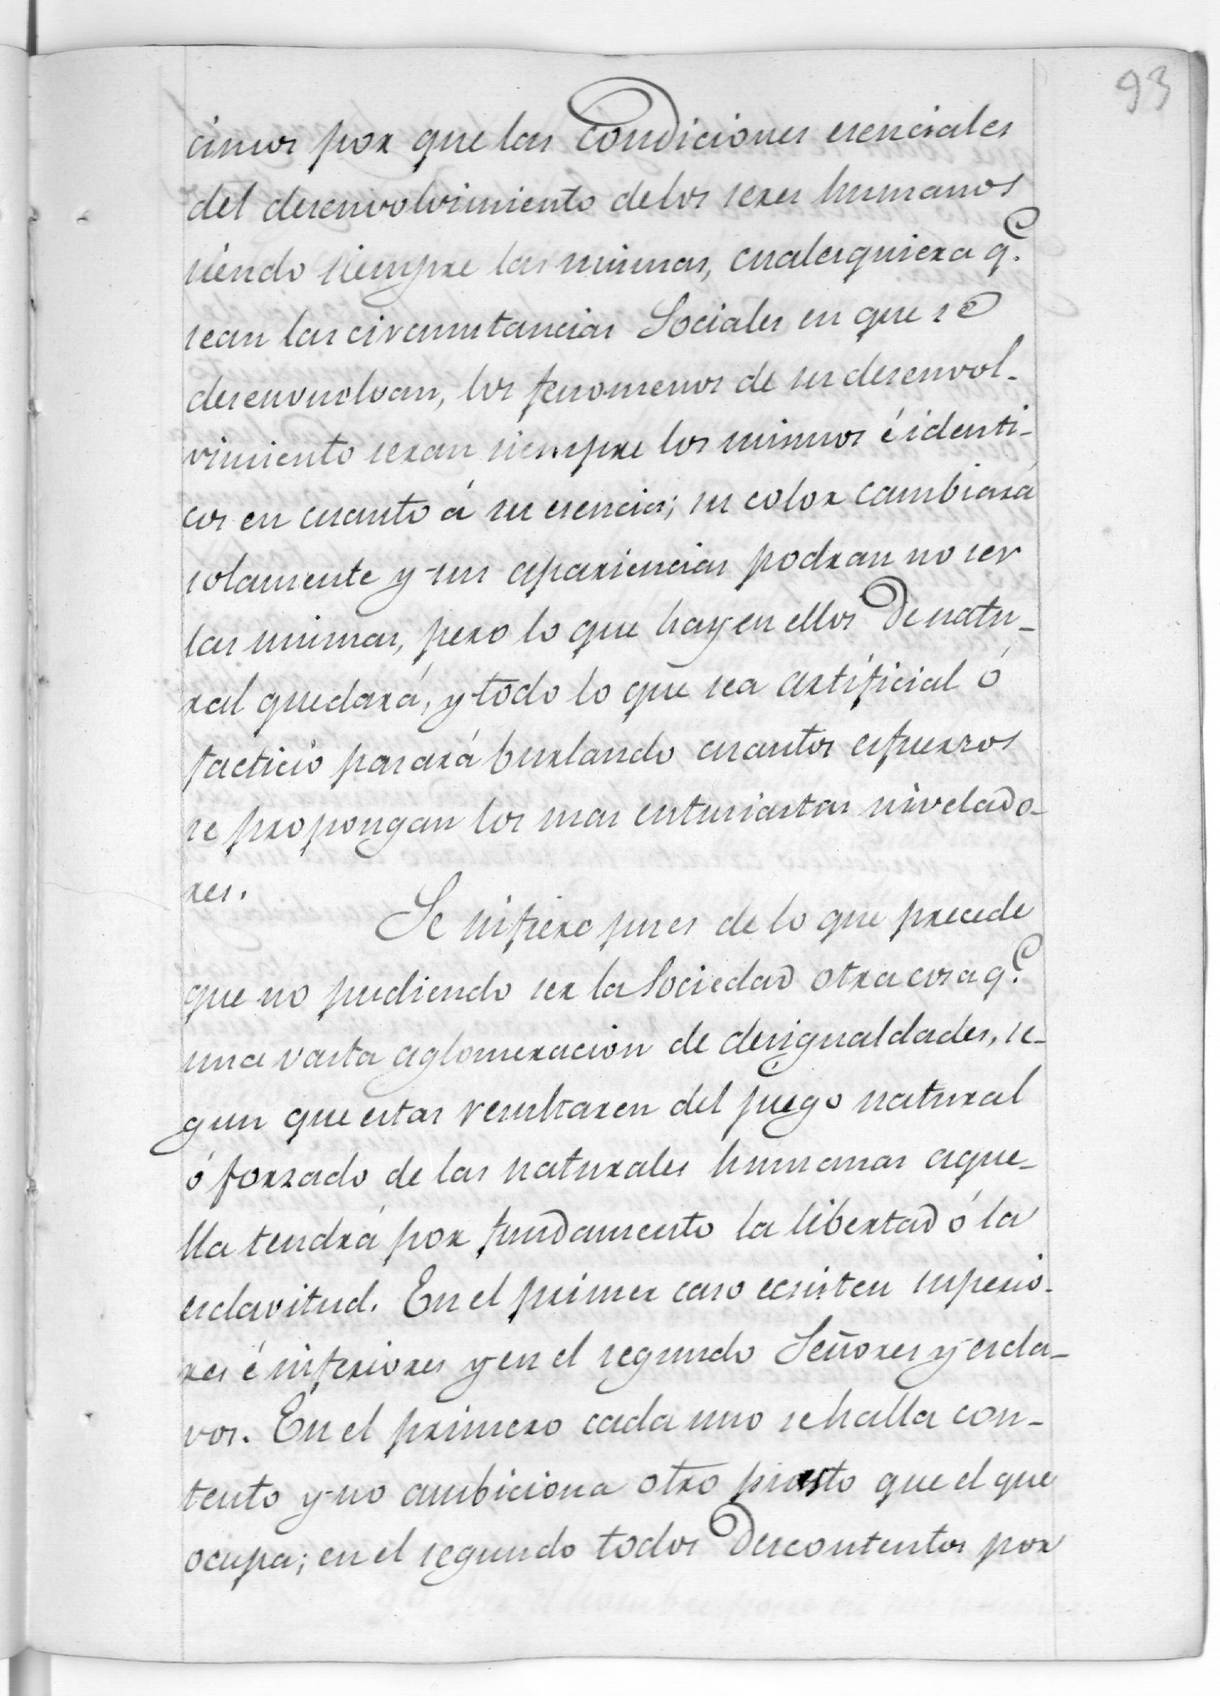 93
cimos por que las Condiciones esenciales
del desenvolvimiento de los seres humanos
siendo siempre las mismas, cualesquiera q.e
sean las circunstancias Sociales en que se
desenvuelvan, los fenomenos de su desenvol-
vimiento seran siempre los mismos é identi-
cos en cuanto á su esencia; su color cambiará
solamente y sus apariencias podran no ser
las mismas, pero lo que hay en ellos De natu-
ral quedará, y todo lo que sea artificial ó
facticio pasará burlando cuantos esfuerzos
se propongan los mas entusiastas nivelado-
res.
Se infiere pues de lo que precede
que no pudiendo ser la Sociedad otra cosa q.e
una vasta aglomeracion de desigualdades, se-
gun que estas resultaren del juego natural
ó forzado de las naturales humanas aque-
lla tendrá por fundamento la libertad ó la
esclavitud. En el primer caso ecsisten superio-
res é inferiores y en el segundo Señores y escla-
vos. En el primero cada uno se halla con-
tento y no ambiciona otro puesto que el que
ocupa; en el segundo todos Descontentos por